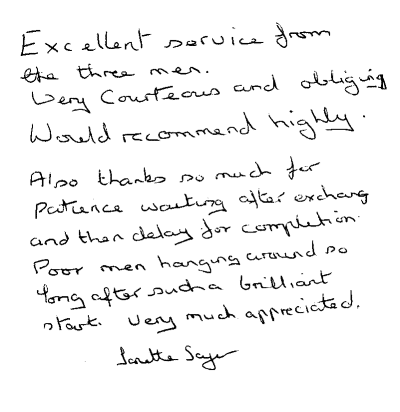 Excellent service from
the three men.
Very Courteous and obliging
Would recommend highly.
Also thanks so much for
patience waiting after exchang
and then delay for completion.
Poor men hanging around so
long after such a brilliant
start. Very much appreciated.